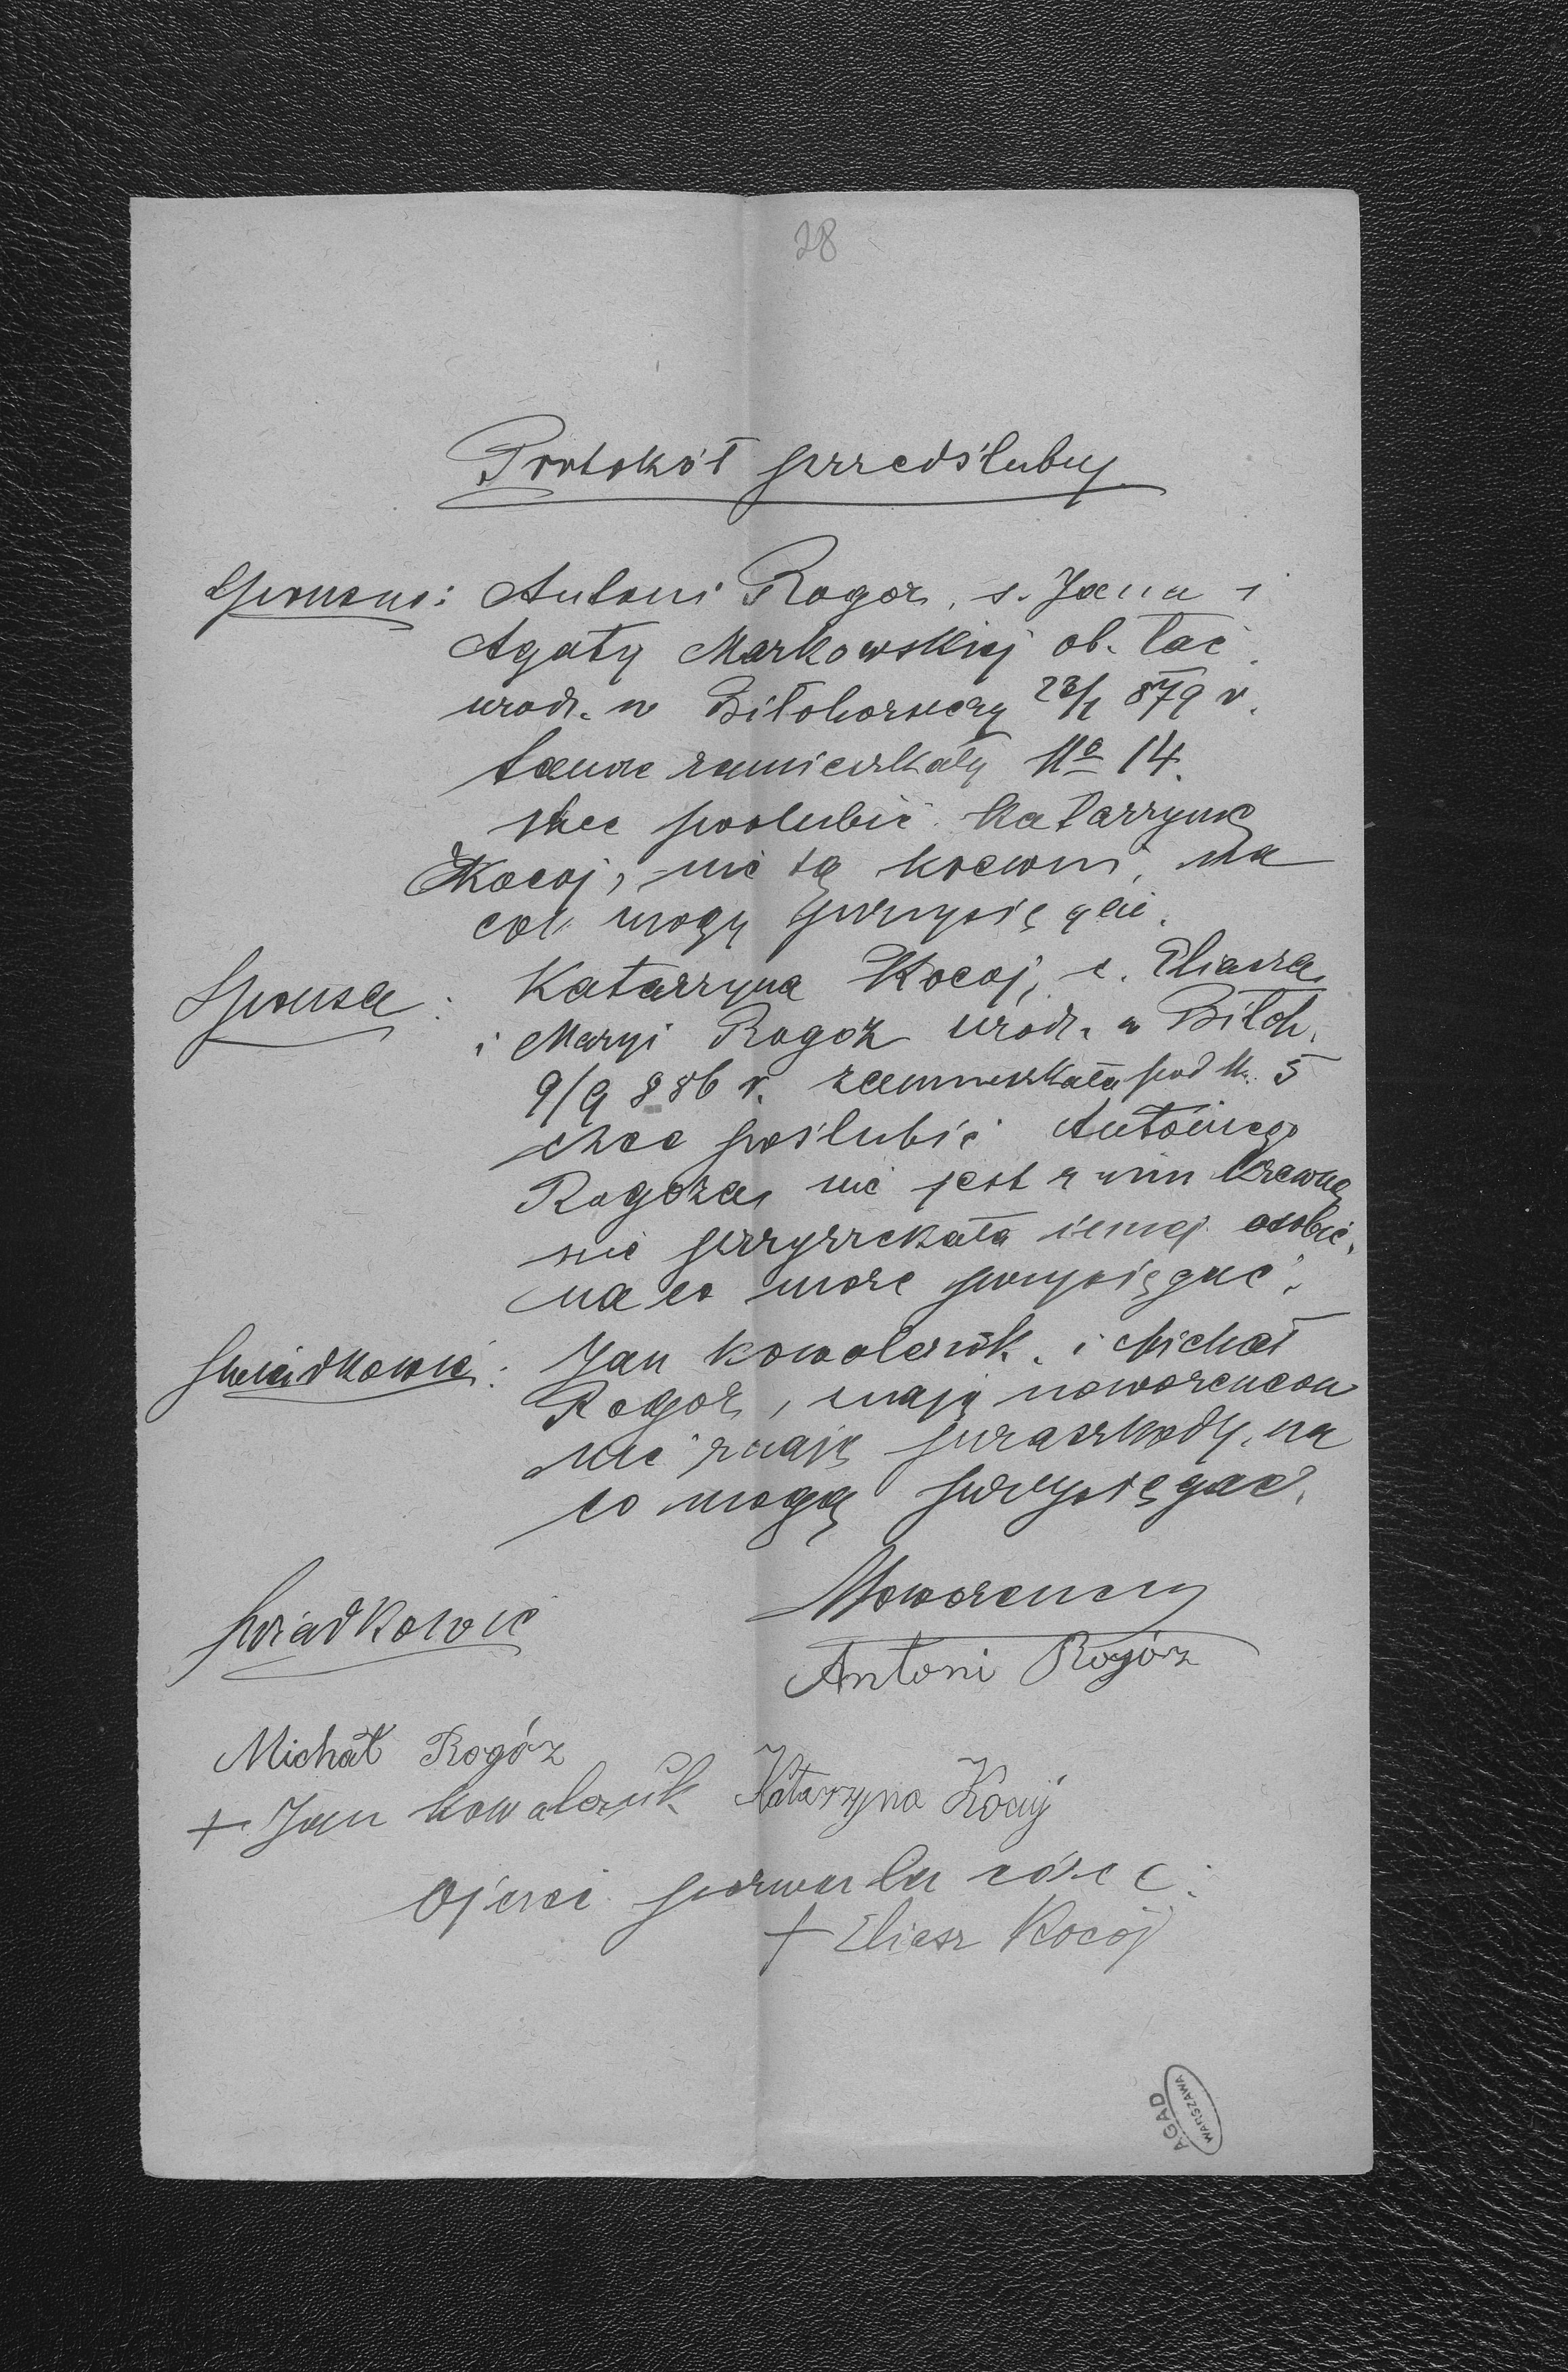 28
Protokół przedślubny
Sponsus: Antoni Rogoz, s. Jana i
Agaty Markowskiej ob. łać.
urodz. w Biłohorszczy 23/1 879 r.
tamże zamieszkały No 14.
chce poslubić Katarzynę
Kocój, nie są krewni, na
co mogą przysięgać.
Sponsa: Katarzyna Kocoj, c. Eliasza
i Maryi Rogoz urodz. w Biłoh.
9/9 886 r. zamieszkała pod No. 5
chce poślubić Antoniego
Rogoza, nie jest z nim krewną
nie przyrzekała innej osobie,
na co może przysięgać.
Swiadkowie: Jan Kowalczuk i Michał
Rogoz, znają nowożeńców
nie znają przeszkody, na
co mogą przysięgać.
Swiadkowie
Nowożeńcy
Antoni Rogóz
Michał Rogóz
+ Jan Kowalczuk Katarzyna Kocuj
Ojciec pozwala córce:
+ Eliasz Kocój
AGAD
WARSZAWA